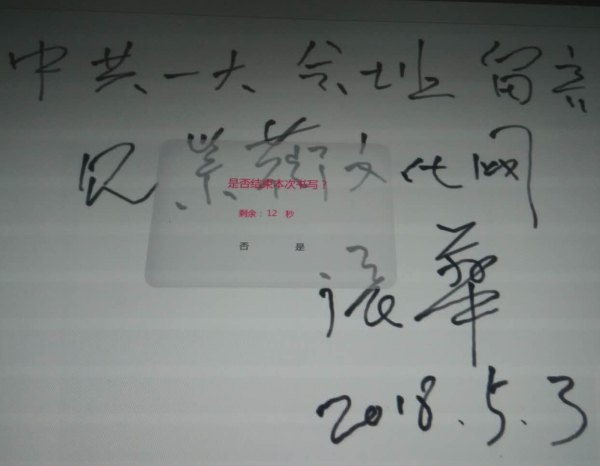 中共一大会址留言
文化网
是否结束本次书写？
剩余：12 秒
否 是
2018.5.3